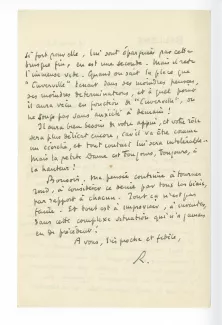 si fort pour elle, lui sont épargnées par cette
brusque fin, en est une seconde. Mais il reste
l'immense vide. Quand on sait la place que
"Cuverville" tenait dans ses moindres pensées,
ses moindres déterminations, et à quel point
il aura vécu en fonction de "Cuverville", on
ne songe pas sans anxiété à demain;
Il aura bien besoin de votre appui, et votre rôle
sera plus délicat encore, car il va être comme
un écorché, et tout contact lui sera intolérable.
Mais la petite Dame est toujours, toujours, à
la hauteur!
Bonsoir, ma pensée continue à tourner
rond, à considérer ce deuil par tous les biais,
par rapport à chacun. Tout ça n'est pas
facile. Et tout est à improviser, à inventer,
dans cette complexe situation qui n'a jamais
eu de précédent!
A vous, très proche et fidèle,
R.